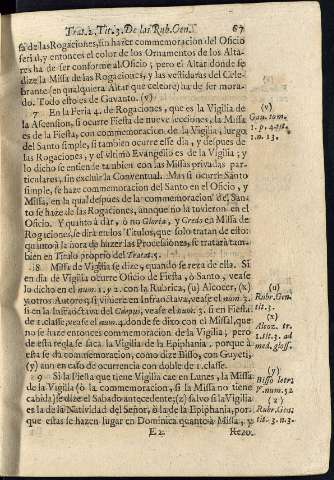 Trat. 2. Tit. 3. De las Rub. Gen. 67
sa de las Rogaciones, sin hazer commemoracion del Oficio
ferial, y entonces el color de los Ornamentos de los Alta-
res ha de ser conforme al Oficio; pero el Altar donde se
dize la Missa de las Rogaciones, y las vestiduras del Cele-
brante (en qualquiera Altar que celebre) ha de ser mora-
do. Todo esto es de Gavanto. (v)
7 En la Feria 4. de Rogaciones, que es la Vigilia de
la Ascension, si ocurre Fiesta de nueve lecciones, la Missa
es de la Fiesta, con commemoracion de la Vigilia, luego
del Santo simple, si tambien ocurre esse dia, y despues de
las Rogaciones, y el vltimo Evangelio es de la Vigilia; y
lo dicho se entiende tambien con las Missas privadas par-
ticulares, sin excluir la Conventual. Mas si ocurre Santo
simple, se haze commemoracion del Santo en el Oficio, y
Missa, en la qual despues de la commemoracion del San-
to se haze de las Rogaciones, aunque no la tuvieron en el
Oficio. Y quanto à dar, ò no Gloria, y Credo en Missa de
Rogaciones, se dirà en los Titulos, que solo tratan de esto:
quanto à la hora de hazer las Procesiones, se tratarà tam-
bien en Titulo proprio del Tratat. 5.
8 Missa de Vigilia se dize, quando se reza de ella. Si
en dia de Vigilia ocurre Oficio de Fiesta, ò Santo, vease
lo dicho en el num. 1. y 2. con la Rubrica, (u) Alcocer, (x)
y otros Autores; si viniere en Infraoctava, vease el num. 3.
si en la Infraoctava del Corpus, vease el num. 3. si en Fiesta
de 1. classe, vease el num. 4. donde se dixo con el Missal, que
no se haze entonces commemoracion de la Vigilia; pero
de esta regla se saca la Vigilia de la Epiphania, porque à
esta se dà commemoracion, como dize Bisso, con Guyeti,
(y) aun en caso de ocurrencia con doble de 1. classe.
9 Si la Fiesta que tiene Vigilia cae en Lunes, la Missa
de la Vigilia (ò la commemoracion, si la Missa no tiene
cabida) se dize el Sabado antecedente; (z) salvo si la Vigilia
es la de la Natividad del Señor, ò la de la Epiphania, por-
que estas se hazen lugar en Dominica quanto à Missa, y
E 2. Rezo.
(v)
Gau. tom.
1. p. 4.
n. 13.
(u)
Rubr. Gen.
tit. 3.
(x)
Alcoz. tr.
1. tit. 3. ad
med. gloss.
(y)
Bisso letr.
V. num. 52
(z)
Rubr. Gen.
tit. 3. n. 3.